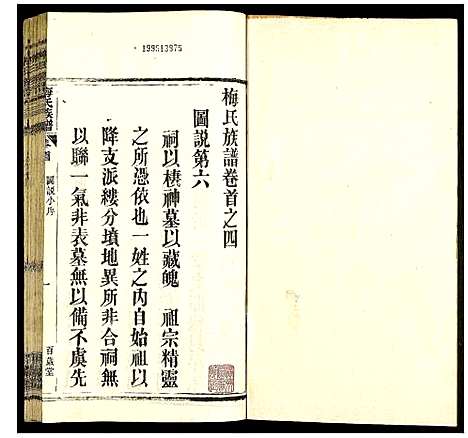 199513975
梅氏族譜卷首之四
圖說第六
祠以棲神墓以藏魄　祖宗精靈
之所憑依也一姓之內自始祖以
降支派縷分墳地異所非合祠無
以聯一氣非表墓無以備不虞先
梅氏族譜
圖說小序
一